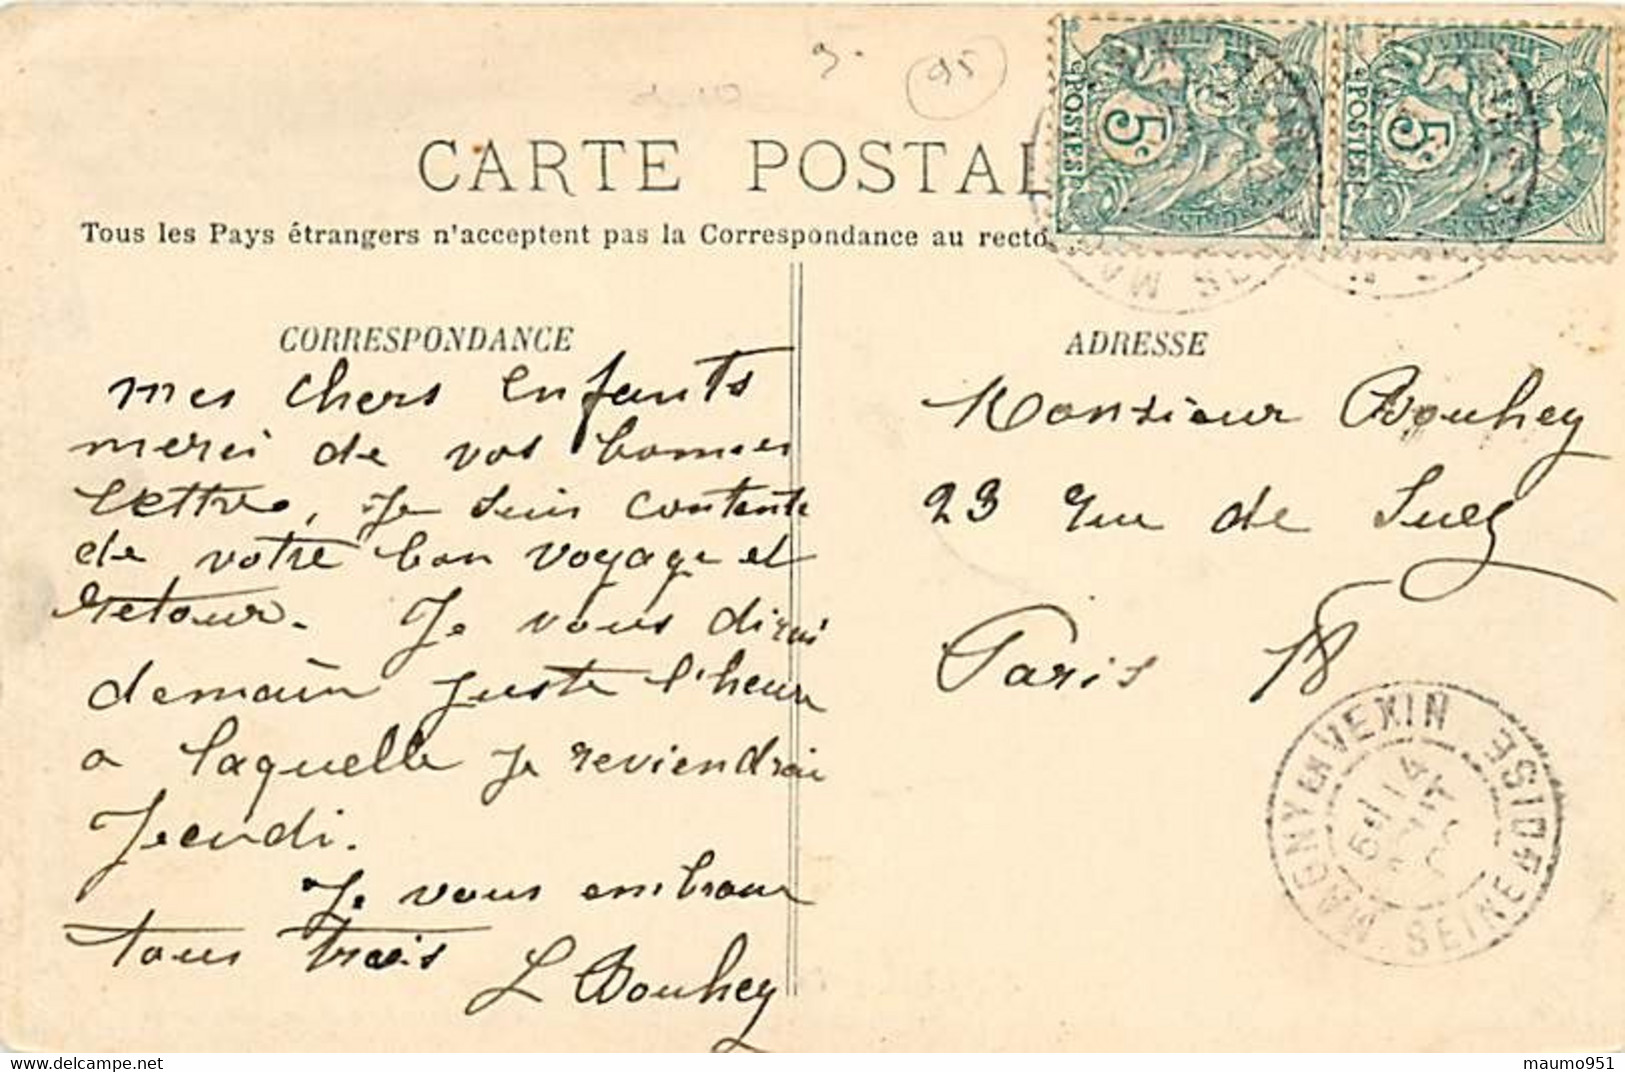 95
CARTE POSTAL
Tous les Pays étrangers n'acceptent pas la Correspondance au recto
5c
POSTES
5c
POSTES
CORRESPONDANCE
mes chers enfants
merci de vos bonnes
lettre, Je suis contente
de votre bon voyage et
retour. Je vous dirai
demain juste l'heure
a laquelle je reviendrai
Jeudi.
Je vous embrasse
tous trois
L Bouhey
ADRESSE
Monsieur Bouhey
23 rue de Suez
Paris 18
MAGNY EN VEXIN
SEINE & OISE
maumo951